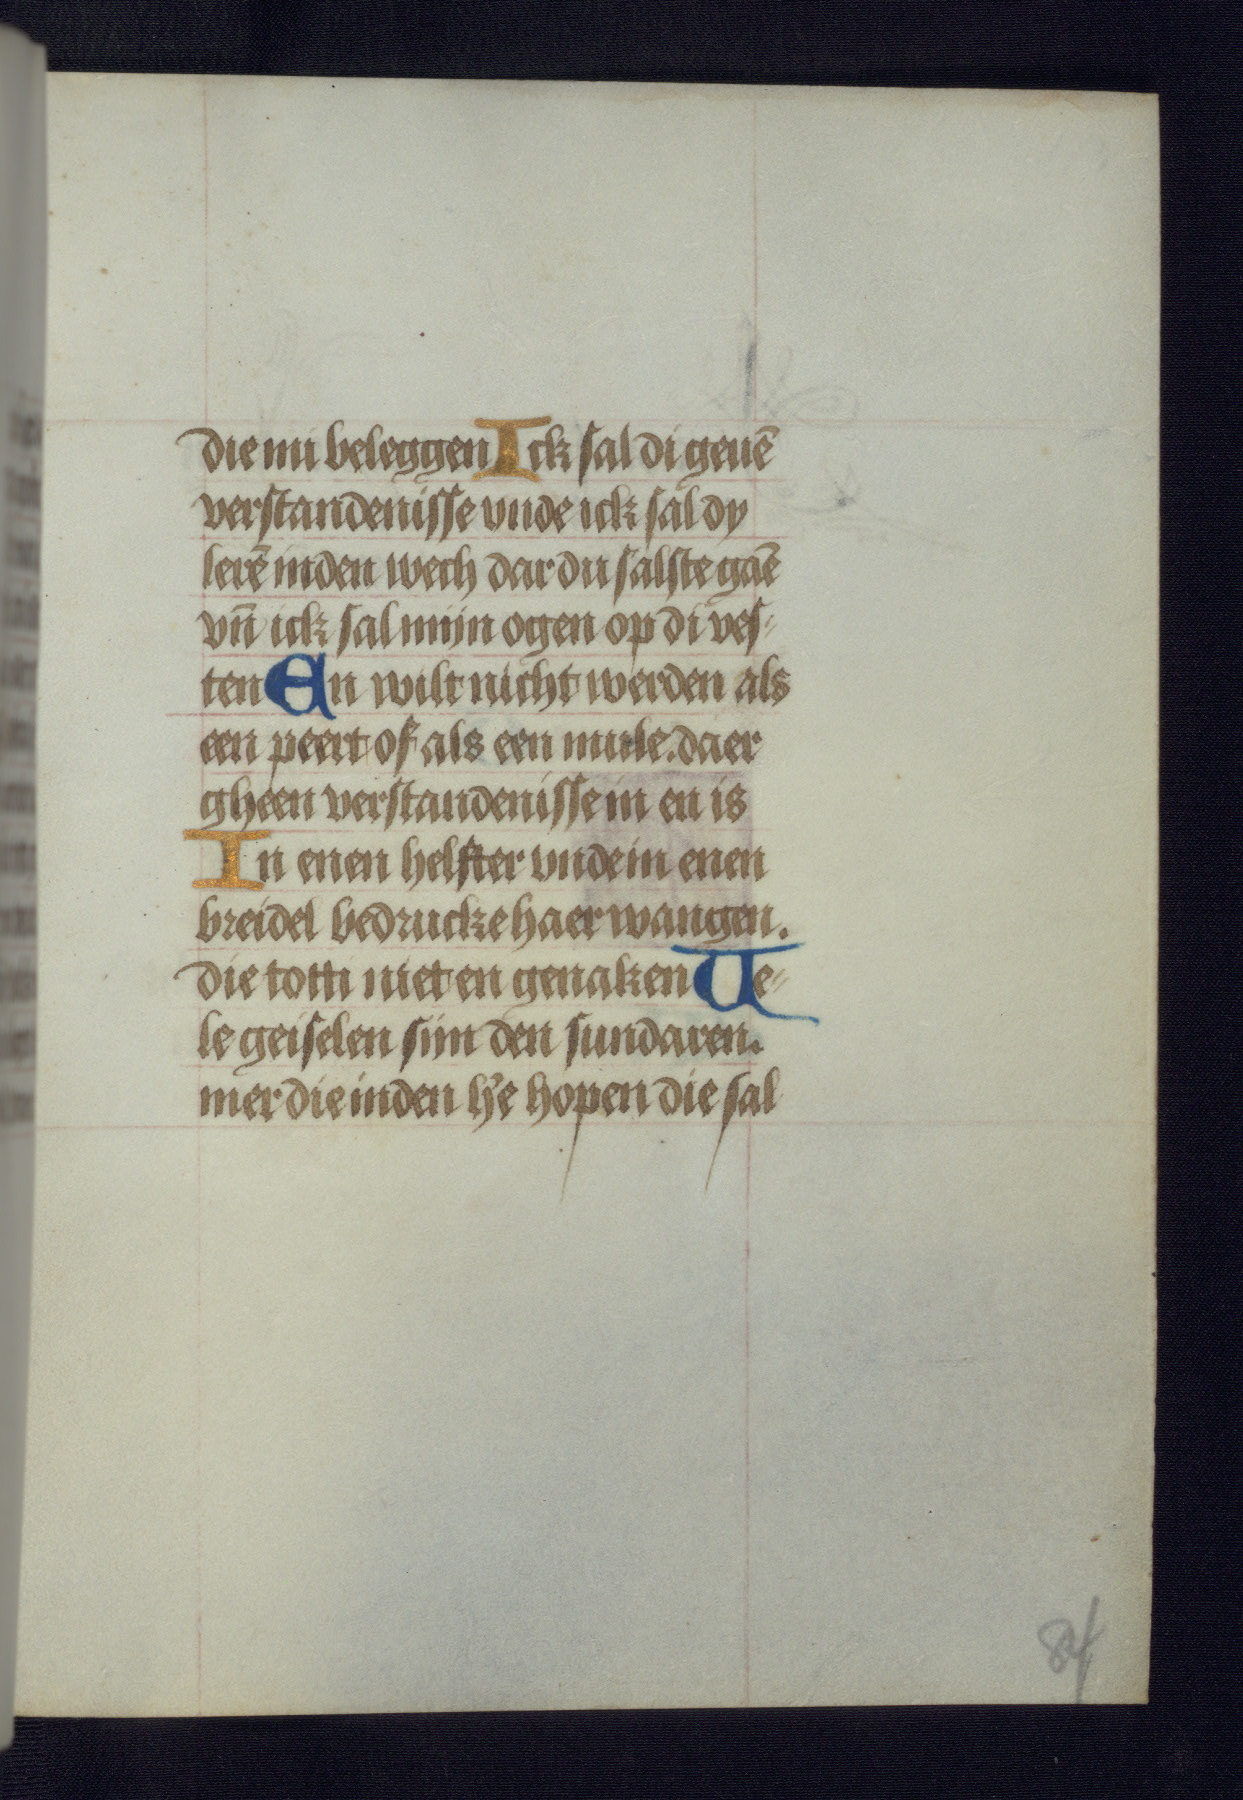 die mi beleggen Ick sal di geuē
verstandenisse vnde ick sal dy
lerē inden wech dar du salste gaē
vn̄ ick sal mijn ogen op di ves⸗
ten En wilt nicht werden als
een peert of als een mule. daer
gheen verstandenisse in en is
In enen helfter vnde in enen
breidel bedrucke haer wangen.
die totti niet en genaken Ve⸗
le geiselen sijn den sundaren.
mer die inden h̾e hopen die sal
84